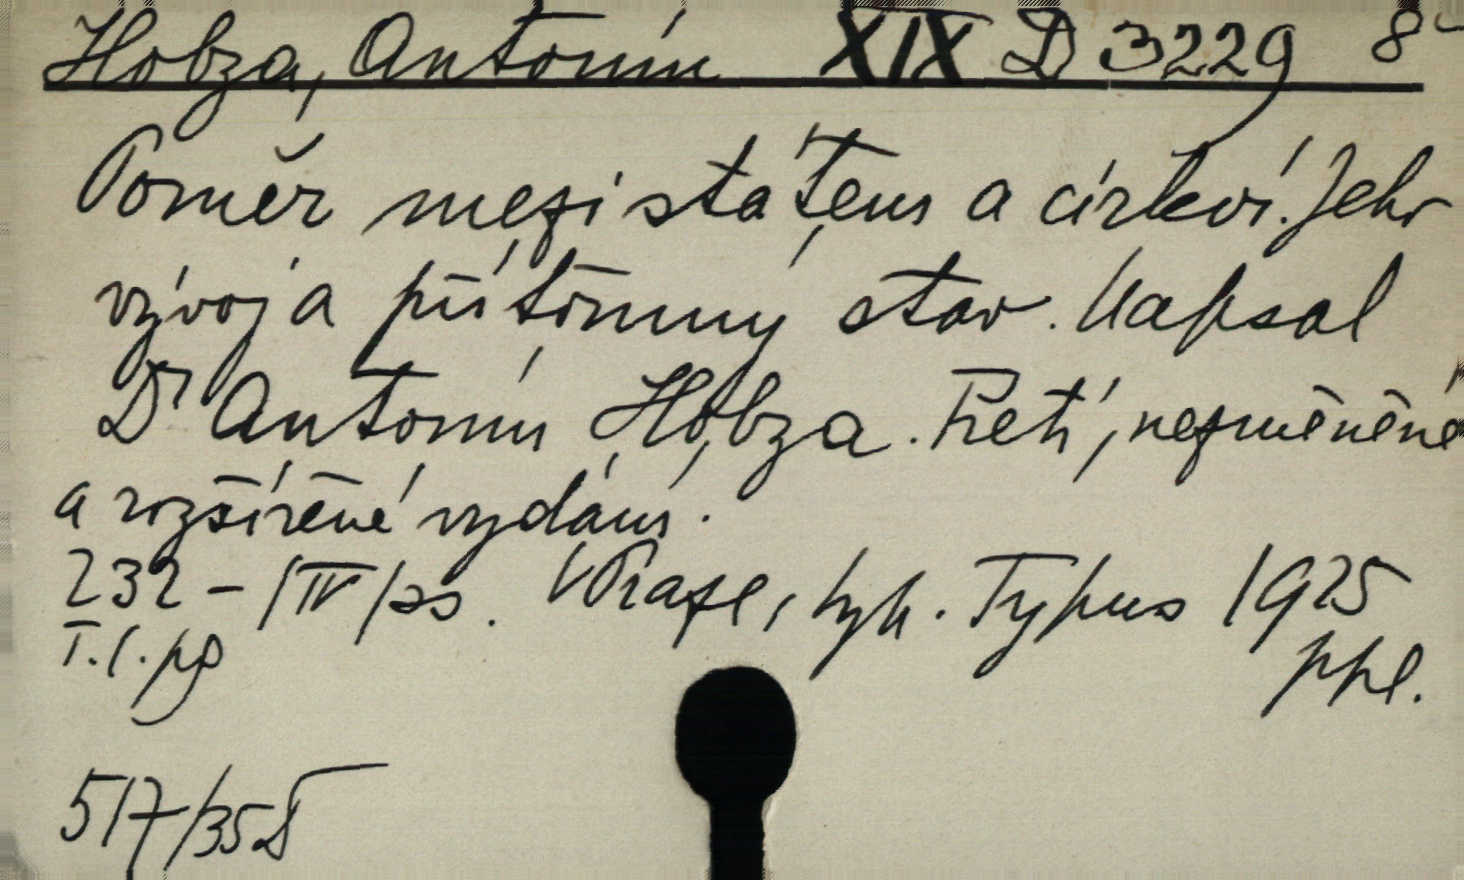 Hobza, Antonín XIX D 3229 8°
Poměr mezi státem a církví. Jeho
vývoj a přítomný stav. Napsal
Dr Antonín Hobza. Třetí, nezměněné
a rozšířené vydání.
232 - /IV/ s. V Praze, tyk. Typus 1925
T.l.pg
ppl.
517/35 D